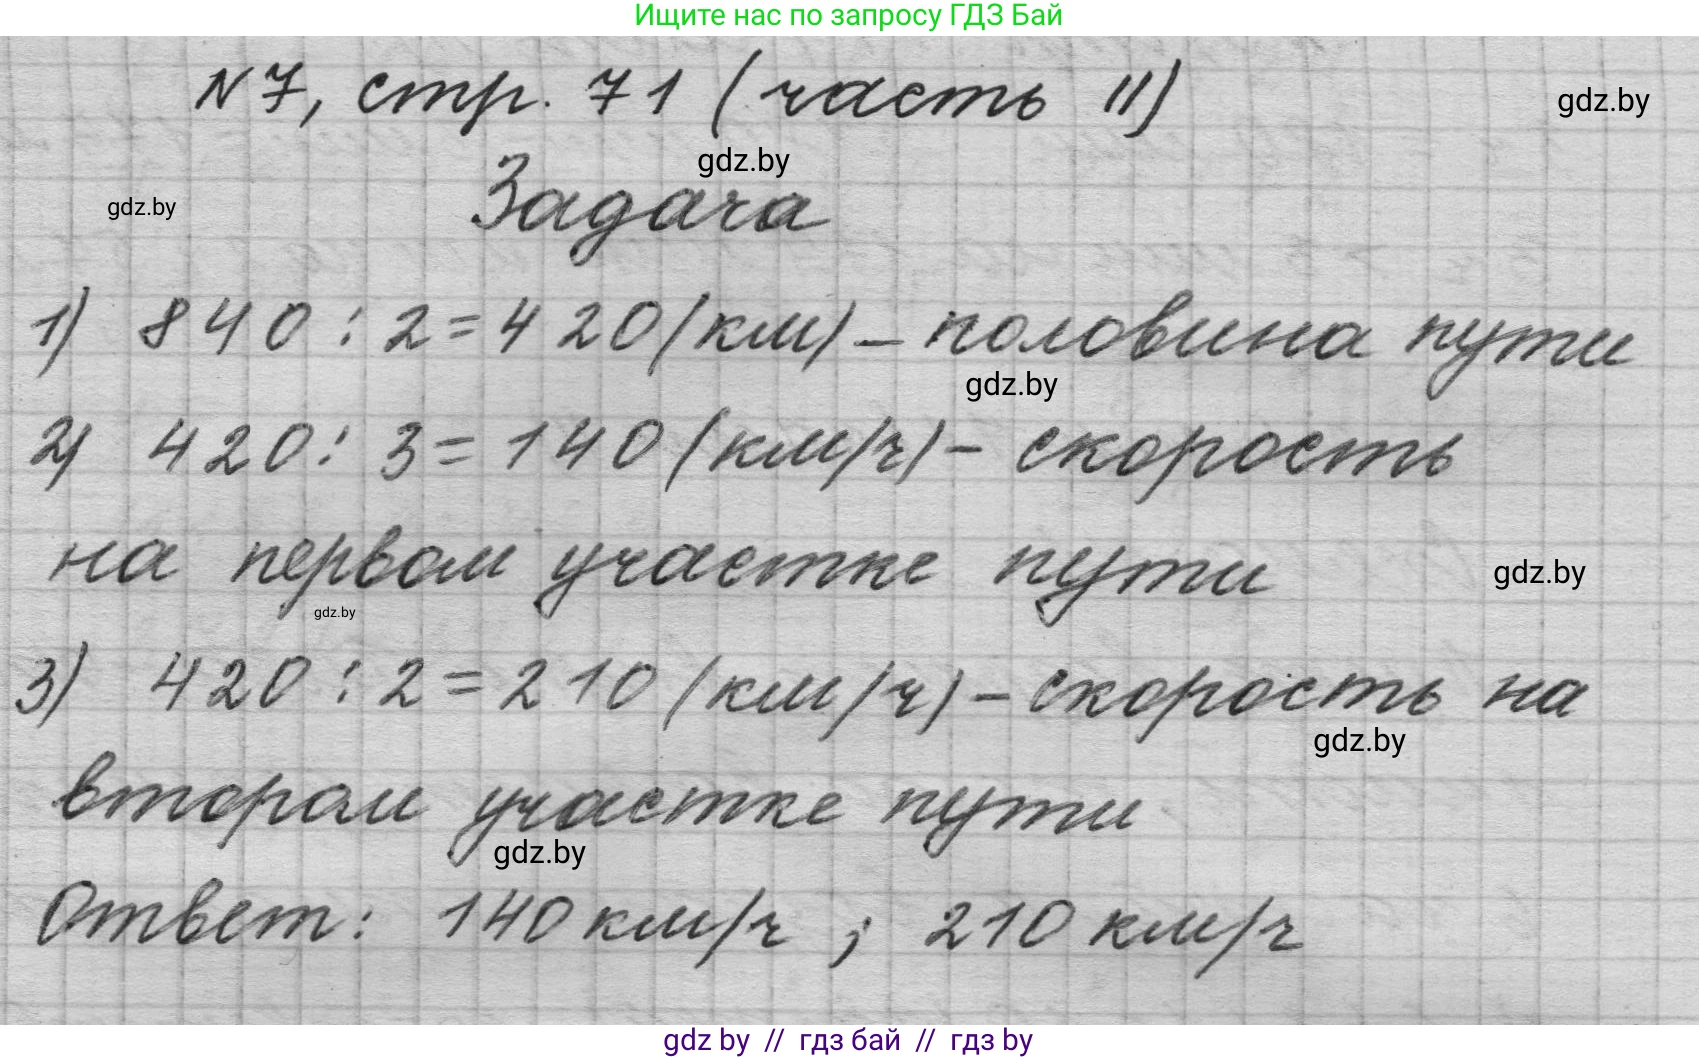 Ищите нас по запросу ГДЗ Бай
N7, стр. 71 (часть II)
gdz.by
gdz.by
gdz.by
Задача
1) 840 : 2 = 420 (км) – половина пути
gdz.by
2) 420 : 3 = 140 (км/ч) – скорость
на первом участке пути
gdz.by
gdz.by
3) 420 : 2 = 210 (км/ч) – скорость на
gdz.by
втором участке пути
gdz.by
Ответ: 140 км/ч ; 210 км/ч
gdz by // гдз бай // gdz by